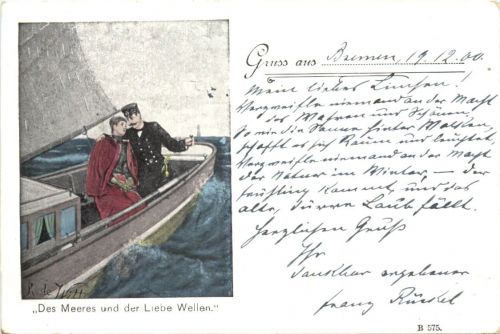 Gruss aus Bremen, 19.12.00.
Mein liebes Lunchen!
Verzweifle niemand an der Macht
des Wahren und Schönen
So wie die Sonne hinter Wolken
schafft es sich Raum und leuchtet,
Verzweifle niemand an der Macht
der Natur im Winter, — der
Frühling kommt, und das
alte, dürre Laub fällt.
Herzlichen Gruß
Ihr
dankbar ergebener
Franz
„Des Meeres und der Liebe Wellen.“
B 575.